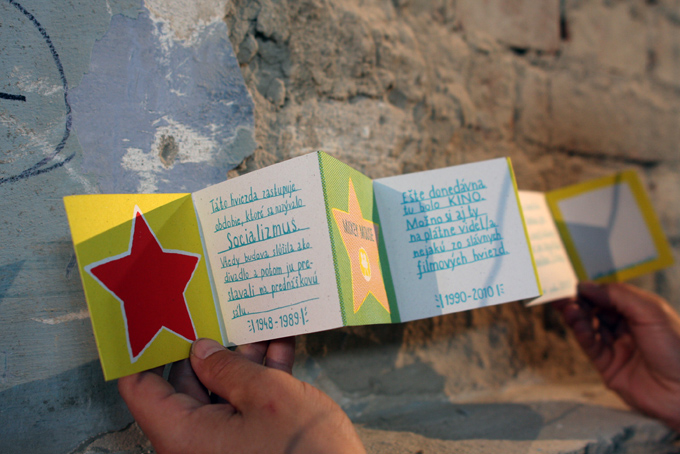 Táto hviezda zastupuje
obdobie, ktoré sa nazývalo
Socializmus.
Vtedy budova slúžila ako
divadlo a potom ju pre-
stavali na prednáškovú
sálu.
1948-1989
MICKEY MOUSE
Ešte donedávna
tu bolo KINO.
Možno si aj ty
na plátne videl/a
nejakú zo slávnych
filmových hviezd.
1990-2010